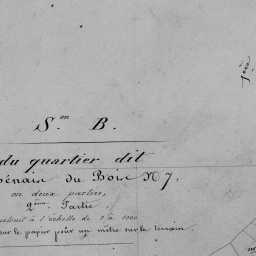 S.on B.
du quartier dit
du Bois N 7.
en deux parties,
2ème Partie
à l'échelle de 1 à 1000
sur le papier pour un mètre sur le terrain.